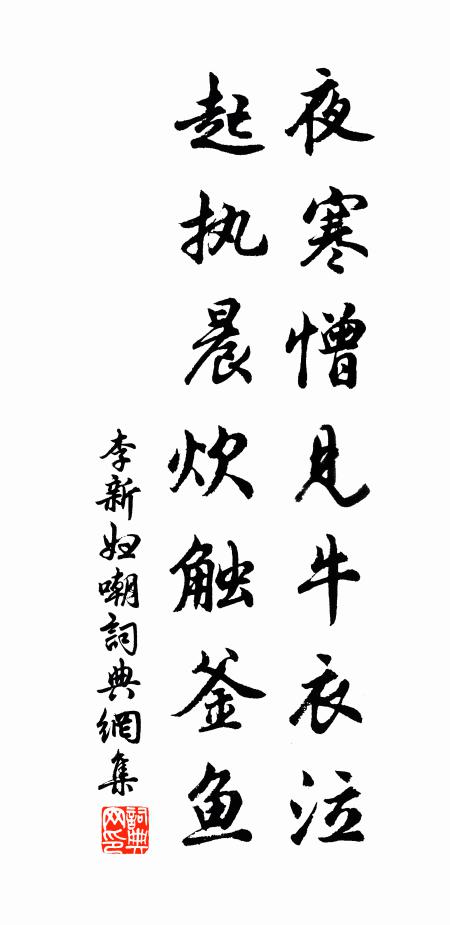 夜寒憎见牛衣泣
起执晨炊触釜鱼
李新妇嘲詞典網集
詞典网印